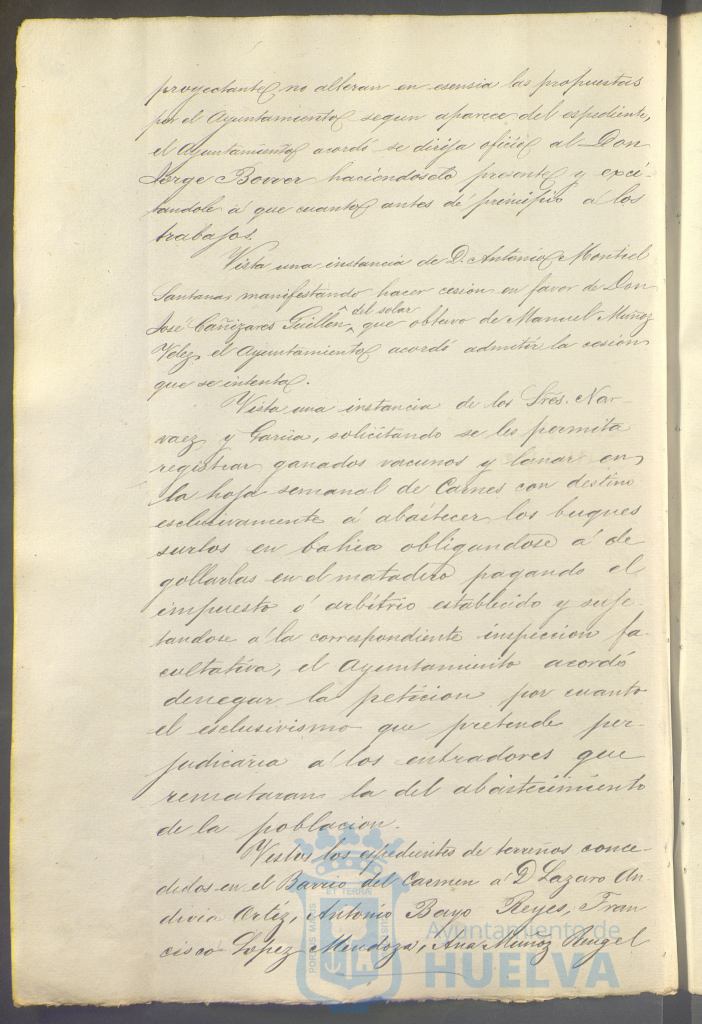 proyectante, no alteran en esensia las propuestas
por el Ayuntamiento segun aparece del espediente,
el Ayuntamiento acordó se dirija oficio al Don
Jorge Bovver haciendoselo presente y exci-
tandole á que cuanto antes dé principio á los
trabajos.
Vista una instancia de D. Antonio Montiel
Santana, manifestando hacer cesion en favor de Don
José Cañizares Guillen, del solar que obtuvo de Manuel Muñoz
Velez, el Ayuntamiento acordó admitir la cesion
que se intenta.
Vista una instancia de los Sres. Nar-
vaez y Garcia, solicitando se les permita
registrar ganados vacunos y lanar en
la hoja semanal de Carnes con destino
esclusivamente á abastecer los buques
surtos en bahia obligandose á de
gollarlas en el matadero pagando el
impuesto ó arbitrio establecido y suje-
tandose á la correspondiente inspeccion fa
cultativa, el Ayuntamiento acordó
denegar la peticion por cuanto
el esclusivismo que pretende per-
judicaria á los entradores que
remataran la del abastecimiento
de la poblacion.
Vistos los espedientes de terrenos conce-
didos en el Barrio del Carmen á D. Lazaro An-
divia Ortiz, Antonio Bayo Reyes, Fran
cisco Lopez Mendoza, Ana Muñoz Rugel
PORTUS MARIS ET TERRAE CUSTODIA
Ayuntamiento de
HUELVA